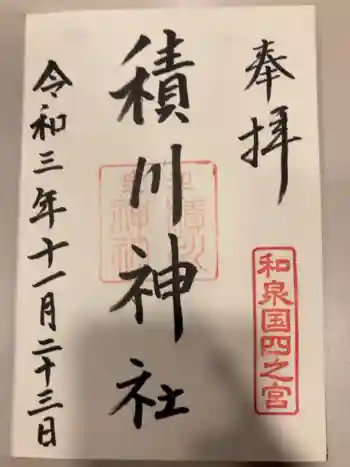 奉拝
和泉国四之宮
積川神社
令和三年十一月二十三日